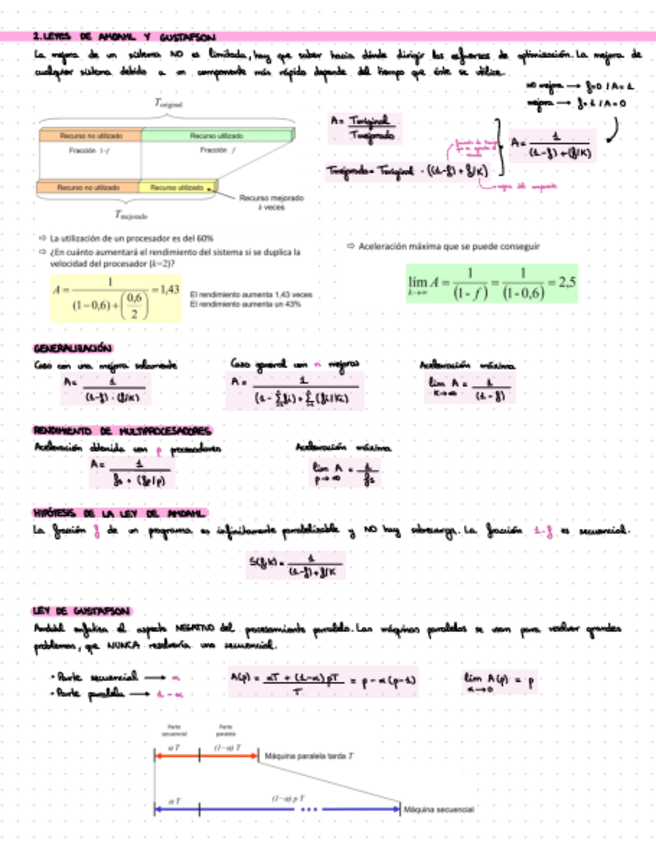 2. LEYES DE AMDAHL Y GUSTAFSON
La mejora de un sistema NO es limitada, hay que saber hacia dónde dirigir los esfuerzos de optimización. La mejora de
cualquier sistema debido a un componente más rápido depende del tiempo que éste se utilice.
NO mejora → f=0 / A=1
mejora → f=1 / A=0
T original
Recurso no utilizado Recurso utilizado
Fracción 1-f Fracción f
Recurso no utilizado Recurso utilizado
Recurso mejorado
k veces
T mejorado
A = Toriginal / Tmejorado
Tmejorado = Toriginal · ((1-f) + f/K)
A = 1 / ((1-f) + (f/K))
⇨ La utilización de un procesador es del 60%
⇨ ¿En cuánto aumentará el rendimiento del sistema si se duplica la
velocidad del procesador (k=2)?
A = 1 / ((1-0,6) + (0,6/2)) = 1,43
El rendimiento aumenta 1,43 veces
El rendimiento aumenta un 43%
⇨ Aceleración máxima que se puede conseguir
lim k→∞ A = 1/(1-f) = 1/(1-0,6) = 2,5
GENERALIZACIÓN
Caso con una mejora solamente Caso general con n mejoras Aceleración máxima
A = 1 / ((1-f) · (f/K))
A = 1 / ((1 - Σfi) + Σ(fi/Ki))
lim K→∞ A = 1 / (1-f)
RENDIMIENTO DE MULTIPROCESADORES
Aceleración obtenida con p procesadores Aceleración máxima
A = 1 / (fs + (fp/p))
lim p→∞ A = 1/fs
HIPÓTESIS DE LA LEY DE AMDAHL
La fracción f de un programa es infinitamente paralelizable y NO hay sobrecarga. La fracción 1-f es secuencial.
S(f,K) = 1 / ((1-f)+f/K)
LEY DE GUSTAFSON
Amdahl enfatiza el aspecto NEGATIVO del procesamiento paralelo. Las máquinas paralelas se usan para resolver grandes
problemas, que NUNCA resolvería una secuencial.
• Parte secuencial → α
• Parte paralela → 1-α
A(p) = (αT + (1-α)pT) / T = p - α(p-1)
lim α→0 A(p) = p
Parte secuencial
Parte paralela
α T (1-α) T Máquina paralela tarda T
α T (1-α) p T Máquina secuencial